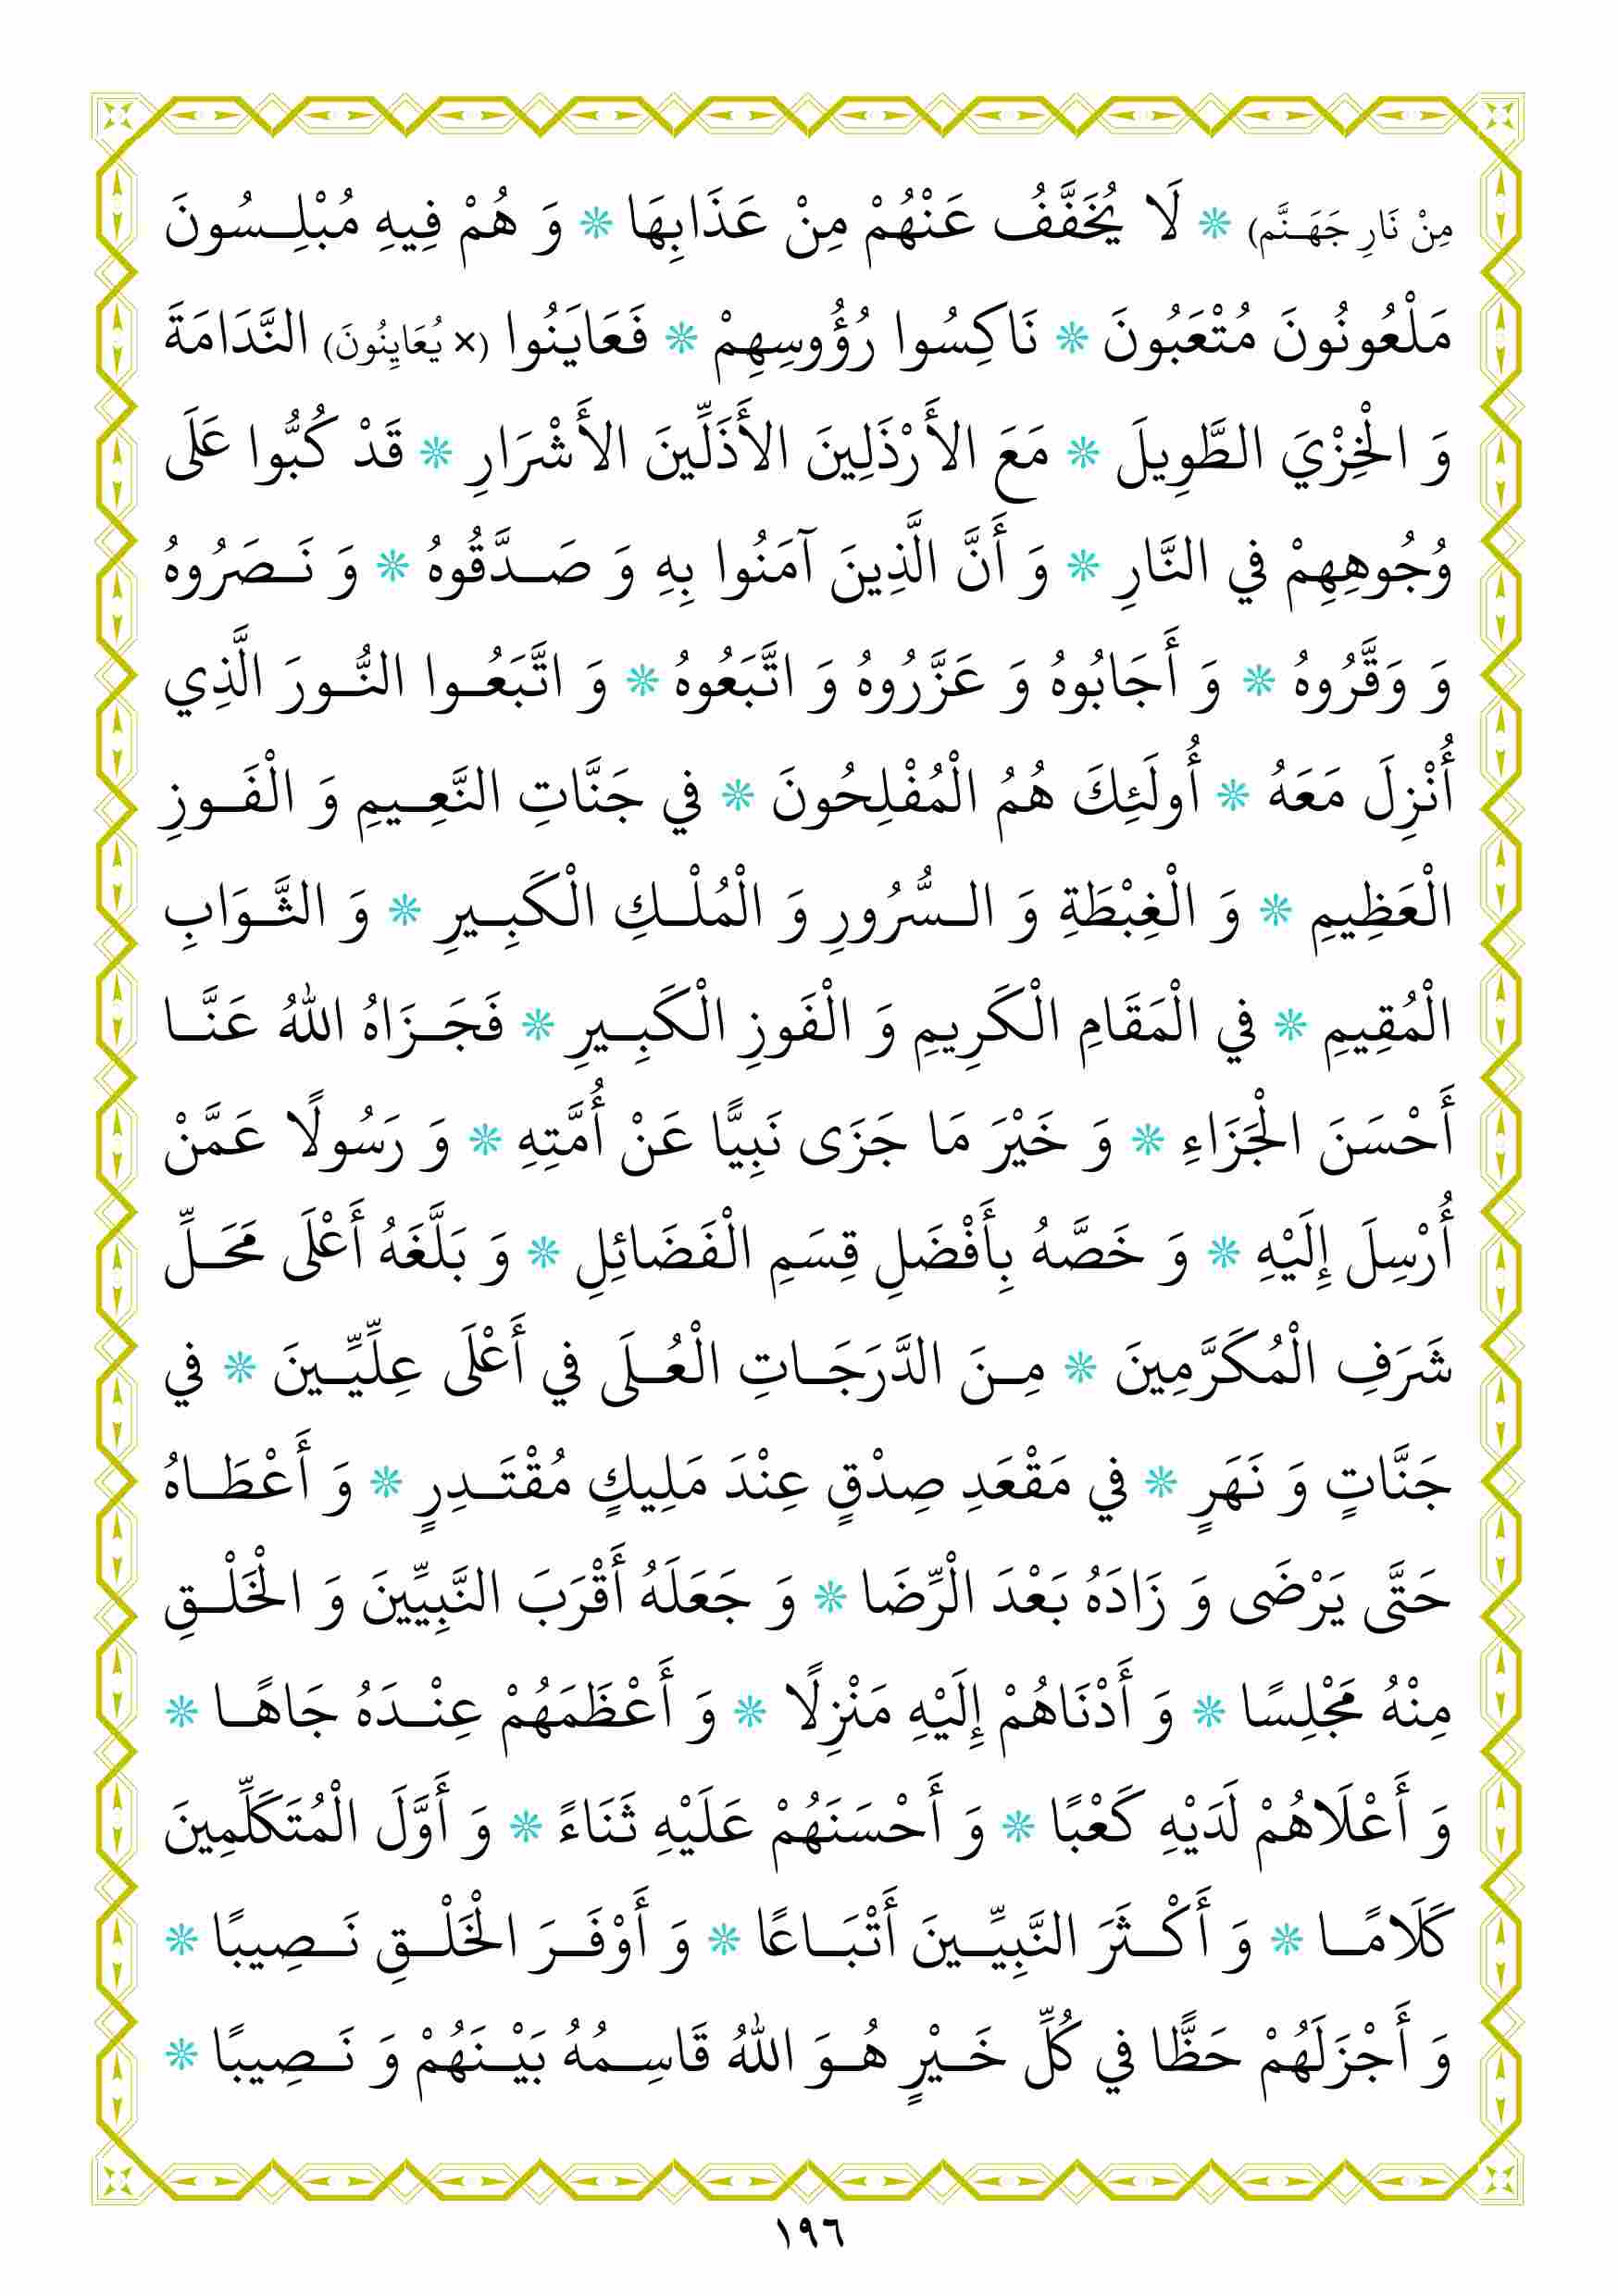 مِنْ نَارِ جَهَنَّم) * لَا يُخَفَّفُ عَنْهُمْ مِنْ عَذَابِهَا * وَ هُمْ فِيهِ مُبْلِسُونَ
مَلْعُونُونَ مُتْعَبُونَ * نَاكِسُوا رُؤُوسِهِمْ * فَعَايَنُوا (× يُعَايِنُونَ) النَّدَامَةَ
وَ الْخِزْيَ الطَّوِيلَ * مَعَ الأَرْذَلِينَ الأَذَلِّينَ الأَشْرَارِ * قَدْ كُبُّوا عَلَى
وُجُوهِهِمْ فِي النَّارِ * وَ أَنَّ الَّذِينَ آمَنُوا بِهِ وَ صَدَّقُوهُ * وَ نَصَرُوهُ
وَ وَقَّرُوهُ * وَ أَجَابُوهُ وَ عَزَّرُوهُ وَ اتَّبَعُوهُ * وَ اتَّبَعُوا النُّورَ الَّذِي
أُنْزِلَ مَعَهُ * أُولَئِكَ هُمُ الْمُفْلِحُونَ * فِي جَنَّاتِ النَّعِيمِ وَ الْفَوزِ
الْعَظِيمِ * وَ الْغِبْطَةِ وَ السُّرُورِ وَ الْمُلْكِ الْكَبِيرِ * وَ الثَّوَابِ
الْمُقِيمِ * فِي الْمَقَامِ الْكَرِيمِ وَ الْفَوزِ الْكَبِيرِ * فَجَزَاهُ اللهُ عَنَّا
أَحْسَنَ الْجَزَاءِ * وَ خَيْرَ مَا جَزَى نَبِيًّا عَنْ أُمَّتِهِ * وَ رَسُولًا عَمَّنْ
أُرْسِلَ إِلَيْهِ * وَ خَصَّهُ بِأَفْضَلِ قِسَمِ الْفَضَائِلِ * وَ بَلَّغَهُ أَعْلَى مَحَلِّ
شَرَفِ الْمُكَرَّمِينَ * مِنَ الدَّرَجَاتِ الْعُلَى فِي أَعْلَى عِلِّيِّينَ * فِي
جَنَّاتٍ وَ نَهَرٍ * فِي مَقْعَدِ صِدْقٍ عِنْدَ مَلِيكٍ مُقْتَدِرٍ * وَ أَعْطَاهُ
حَتَّى يَرْضَى وَ زَادَهُ بَعْدَ الْرِّضَا * وَ جَعَلَهُ أَقْرَبَ النَّبِيِّينَ وَ الْخَلْقِ
مِنْهُ مَجْلِسًا * وَ أَدْنَاهُمْ إِلَيْهِ مَنْزِلًا * وَ أَعْظَمَهُمْ عِنْدَهُ جَاهًا *
وَ أَعْلَاهُمْ لَدَيْهِ كَعْبًا * وَ أَحْسَنَهُمْ عَلَيْهِ ثَنَاءً * وَ أَوَّلَ الْمُتَكَلِّمِينَ
كَلَامًا * وَ أَكْثَرَ النَّبِيِّينَ أَتْبَاعًا * وَ أَوْفَرَ الْخَلْقِ نَصِيبًا *
وَ أَجْزَلَهُمْ حَظًّا فِي كُلِّ خَيْرٍ هُوَ اللهُ قَاسِمُهُ بَيْنَهُمْ وَ نَصِيبًا *
١٩٦